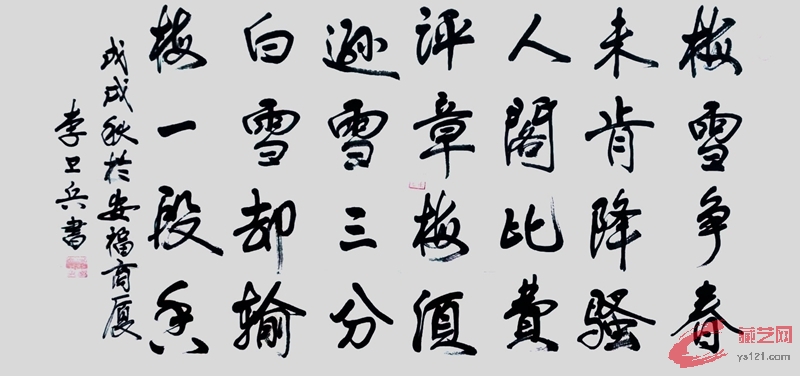 梅雪争春
未肯降騷
人閣比費
評章梅須
遜雪三分
白雪却輸
梅一段香
戊戌秋於安福商厦
李卫兵書
藏艺网
ys121.com